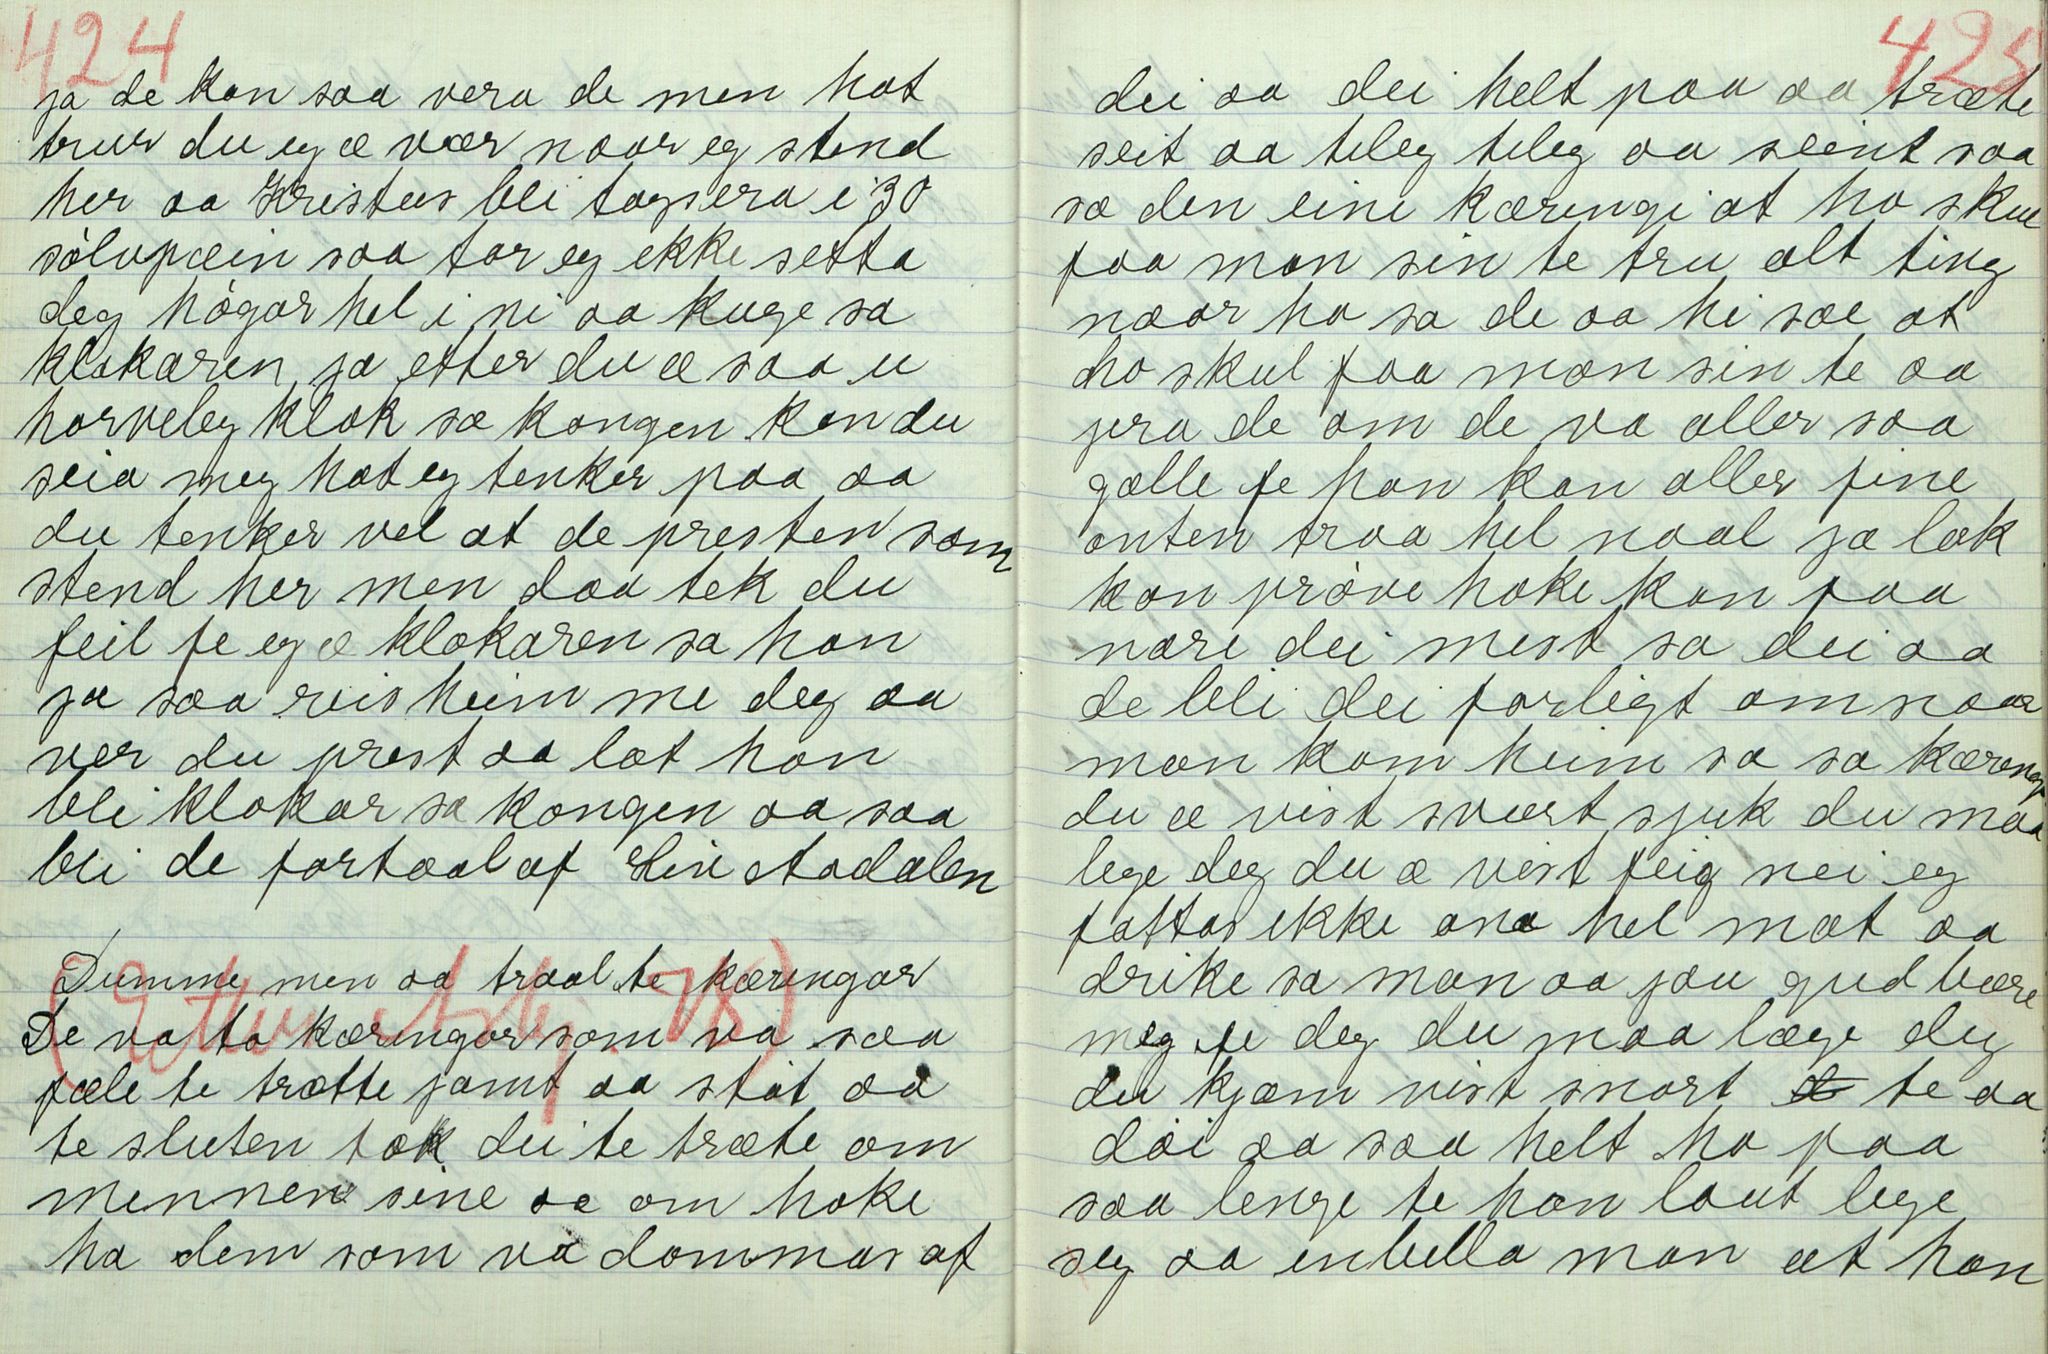 424
ja de kan saa vera de men hot
trur du eg æ vær naar eg stend
her aa Kristus bli togsera i 30
sølvpæin saa tor eg ikke setta
deg høgar hel i ni aa kuge sa
klokaren ja etter du æ saa u
horveleg klok sa kongen kan du
seia meg hot eg tenker paa aa
du tenker vel at de presten som
stend her men daa tek du
feil fe eg æ klokaren sa han
ja saa reis heim me deg aa
ver du prest aa læt han
bli klokar sa kongen aa saa
bli de fortaal af Liv Stadalen

Dumme men aa traal te kæringar
De va to kæringar som va saa
fæle te trætte jamt aa støt aa
te sluten tok dei te træte om
mennen sine aa om hoke
ha dem som va dommas af
425
dei aa dei helt paa aa træte
seit aa teleg teleg aa seint saa
sa den eine kæringi at ho skul
faa man sin te tru alt ting
naar ho sa de aa hi sae at
ho skul faa man sin te aa
jera de om de va aller saa
gælle fe han kan aller fine
anten traa hel naal ja læk
kan prøve hoke kan faa
nare dei mest sa dei aa
de bli dei forligt om naar
man kom heim sa sa kæringi
du æ vist svært sjuk du maa
lege deg du æ vist feig nei eg
fattas ikke ana hel mæt aa
drike sa man aa jau gud bære
meg fe deg du maa læge deg
du kjæm vist snart te aa
døi aa saa helt ho paa
saa lenge te han laut lege
seg aa inbilla man at han